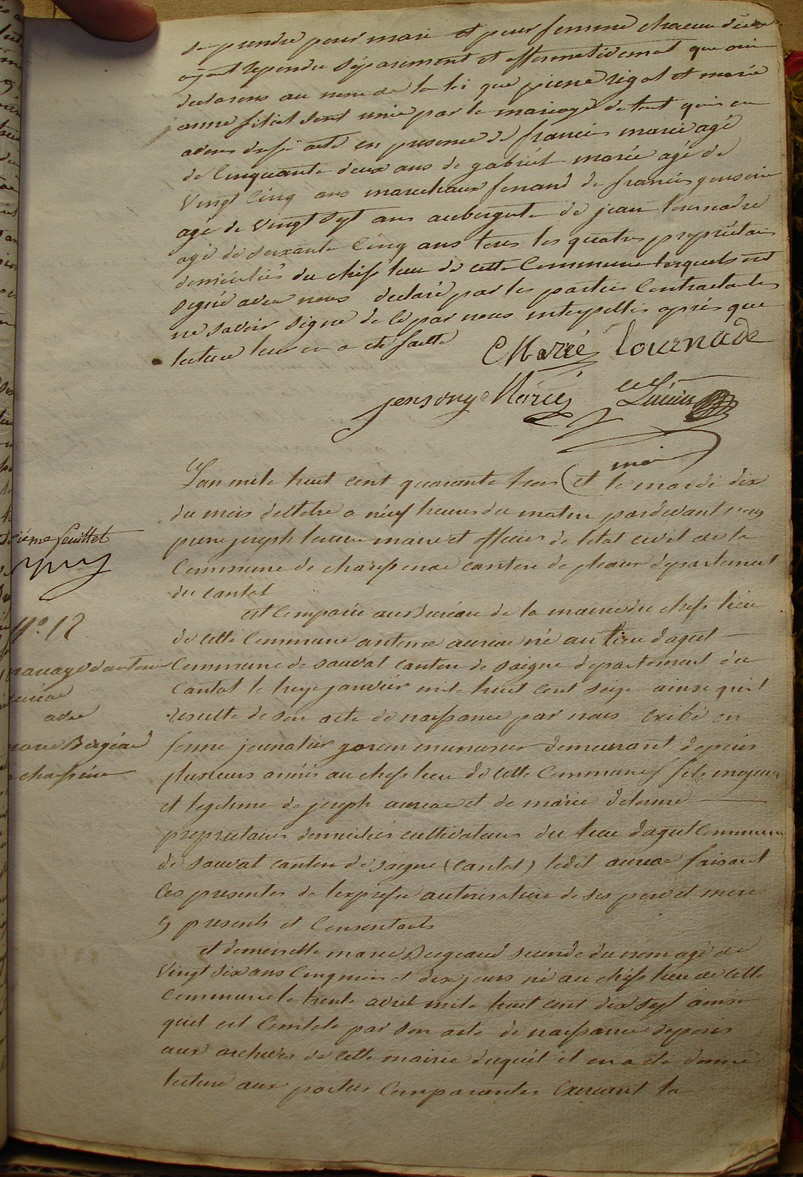 se prendre pour mari et pour femme chacun d'eux
ayant repondu séparement et affirmativement que oui
declarons au nom de la loi que pierre rigal et marie
jeanne sont unis par le mariage de tout quoi en
avons dressé acte en presence de francois marié agé
de Cinquante deux ans de gabriel marié agé de
Vingt Cinq ans marechaux ferrand de francois
agé de Vingt Sept ans aubergiste de jean tournadre
agé de soixante Cinq ans tous les quatre propriétaires
domiciliés du chef lieu de cette Commune lesquels ont
signé avec nous declaré par les parties Contractantes
ne savoir signe de ce par nous interpellés après que
lecture leur en a été faitte
Marié Tournadre
Marié
maire
L'an mile huit cent quarante trois et le mardi dix
du mois d'octobre a neuf heures du matin pardevant nous
pierre joseph maire et officier de letat civil de la
Commune de canton de departement
du cantal
est Comparu au Bureau de la mairie du chef lieu
de cette Commune antoine aureac né au lieu d'aguet
Commune de sauvat canton de saigne departement du
Cantal le janvier mile huit cent seize ainsi quil
resulte de son acte de naissance par nous Exibé en
forme journalier garcon menuisier demeurant depuis
plusieurs années au chef lieu de cette Commune fils majeur
et legitime de joseph aureac et de marie
propriétaires domiciliés cultivateurs du lieu daguet Commune
de sauvat canton de saigne (Cantal) ledit aureac faisant
Ces presentes de l'expresse autorisation de ses pere et mere
y presents et Consentants
et demoiselle marie Bergeaud seconde du nom agé de
Vingt six ans Cinq mois et dix jours né au chef lieu de cette
Commune le trente avril mile huit cent dix sept ainsi
quil est Constaté par son acte de naissance deposé
aux archives de cette mairie duquel il en a été donné
lecture aux parties Comparantes Exercant la
feuillet
N° 12
mariage d'antoine
aureac
avec
marie Bergeaud